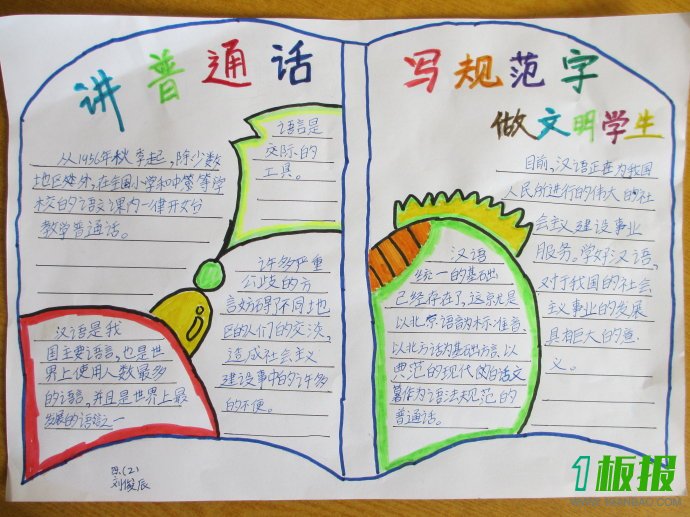 讲普通话
从1956年秋季起，除少数
地区外，在全国小学和中等学
校的语文课内一律开始
教学普通话。
语言是
交际的
工具。
许多严重
分歧的方
言妨碍了不同地
区的人们的交谈，
造成社会主义
建设事中的许多
的不便。
汉语是我
国主要语言，也是世
界上使用人数最多
的语言，并且是世界上最
发展的语言之一
四(2)
刘俊辰
写规范字
做文明学生
目前，汉语正在为我国
人民所进行的伟大的社
会主义建设事业
服务。学好汉语，
对于我国的社会
主义事业的发展
具相巨大的意
义。
汉语
统一的基础
已经存在了，这就是
以北京语音为标准音，
以北方话为基础方言、以
典范的现代白话文
著作为语法规范的
普通话。
1板报